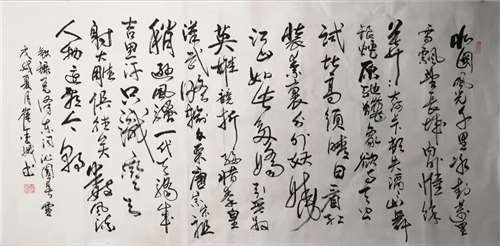 北国风光千里冰封万里
雪飘望长城内外惟余
莽莽大河上下顿失滔滔山舞
银蛇原驰蜡象欲与天公
试比高须晴日看红
装素裹分外妖娆
江山如此多娇引无数
英雄竞折腰惜秦皇
汉武略输文采唐宗宋祖
稍逊风骚一代天骄成
吉思汗只识弯弓
射大雕俱往矣数风流
人物还看今朝
录毛泽东词沁园春雪
戊戌夏月